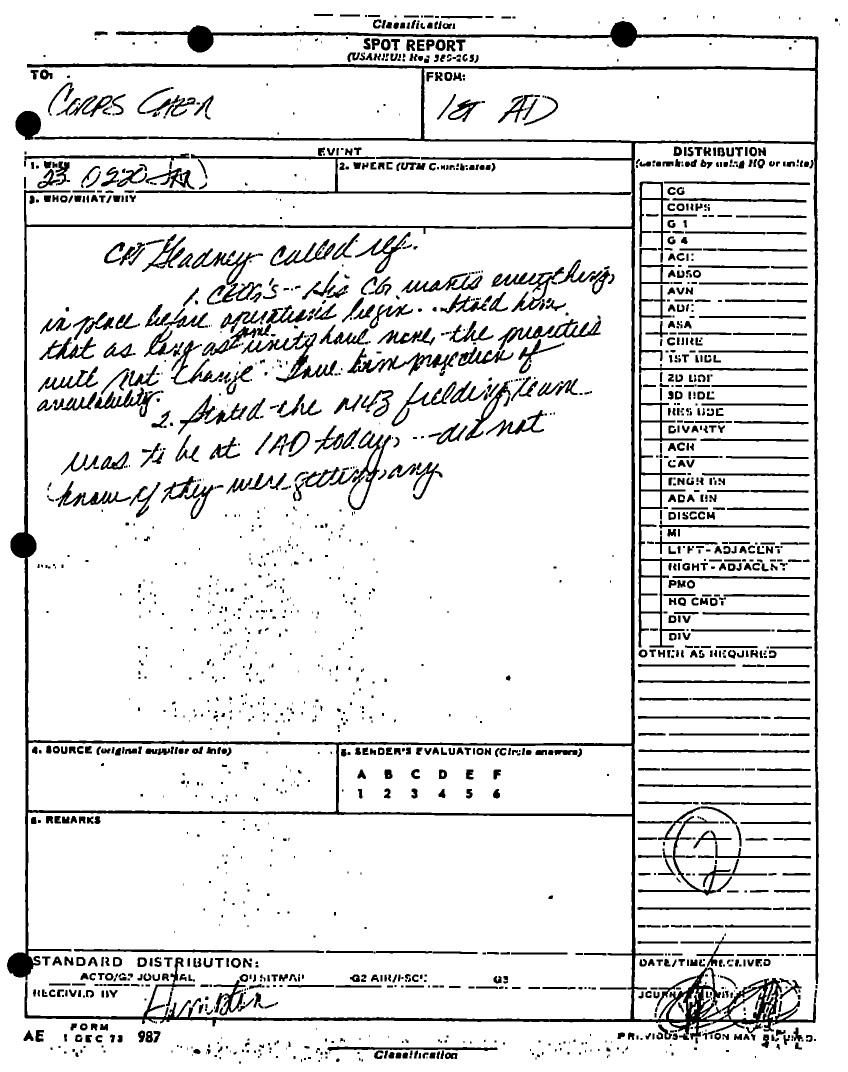 Classification
SPOT REPORT
(USAREUR Reg 380-205)
TO: FROM:
CORPS CHEM 1st AD
EVENT
DISTRIBUTION
(determined by using HQ or units)
1. WHEN 2. WHERE (UTM Coordinates)
23 0220 JAN
3. WHO/WHAT/WHY
CPT Gladney called ref:
1. CEOG's -- His CG wants everything
in place before operations begin. I told him
that as long as some units have none, the priorities
will not change. Gave him projection of
availability.
2. Stated the M43 fielding team
was to be at 1AD today -- did not
know if they were getting any
CG
CORPS
G 1
G 4
ADSO
AVN
ASA
1ST BDE
2D BDE
3D BDE
RES BDE
DIVARTY
ACR
CAV
ENGR BN
ADA BN
DISCOM
MI
LEFT-ADJACENT
RIGHT-ADJACENT
PMO
HQ CMDT
DIV
DIV
OTHER AS REQUIRED
4. SOURCE (original supplier of info) 5. SENDER'S EVALUATION (Circle answers)
A B C D E F
1 2 3 4 5 6
6. REMARKS
2
STANDARD DISTRIBUTION:
ACTO/G2 JOURNAL G2 SITMAP G2 AIR/FSCE G3
DATE/TIME RECEIVED
RECEIVED BY Hampton
JOURNAL NUMBER
AE FORM 1 DEC 73 987
PREVIOUS EDITION MAY BE USED.
Classification